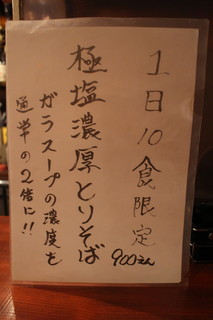 1日10食限定
極塩濃厚とりそば
900えん
ガラスープの濃度を
通常の2倍に!!